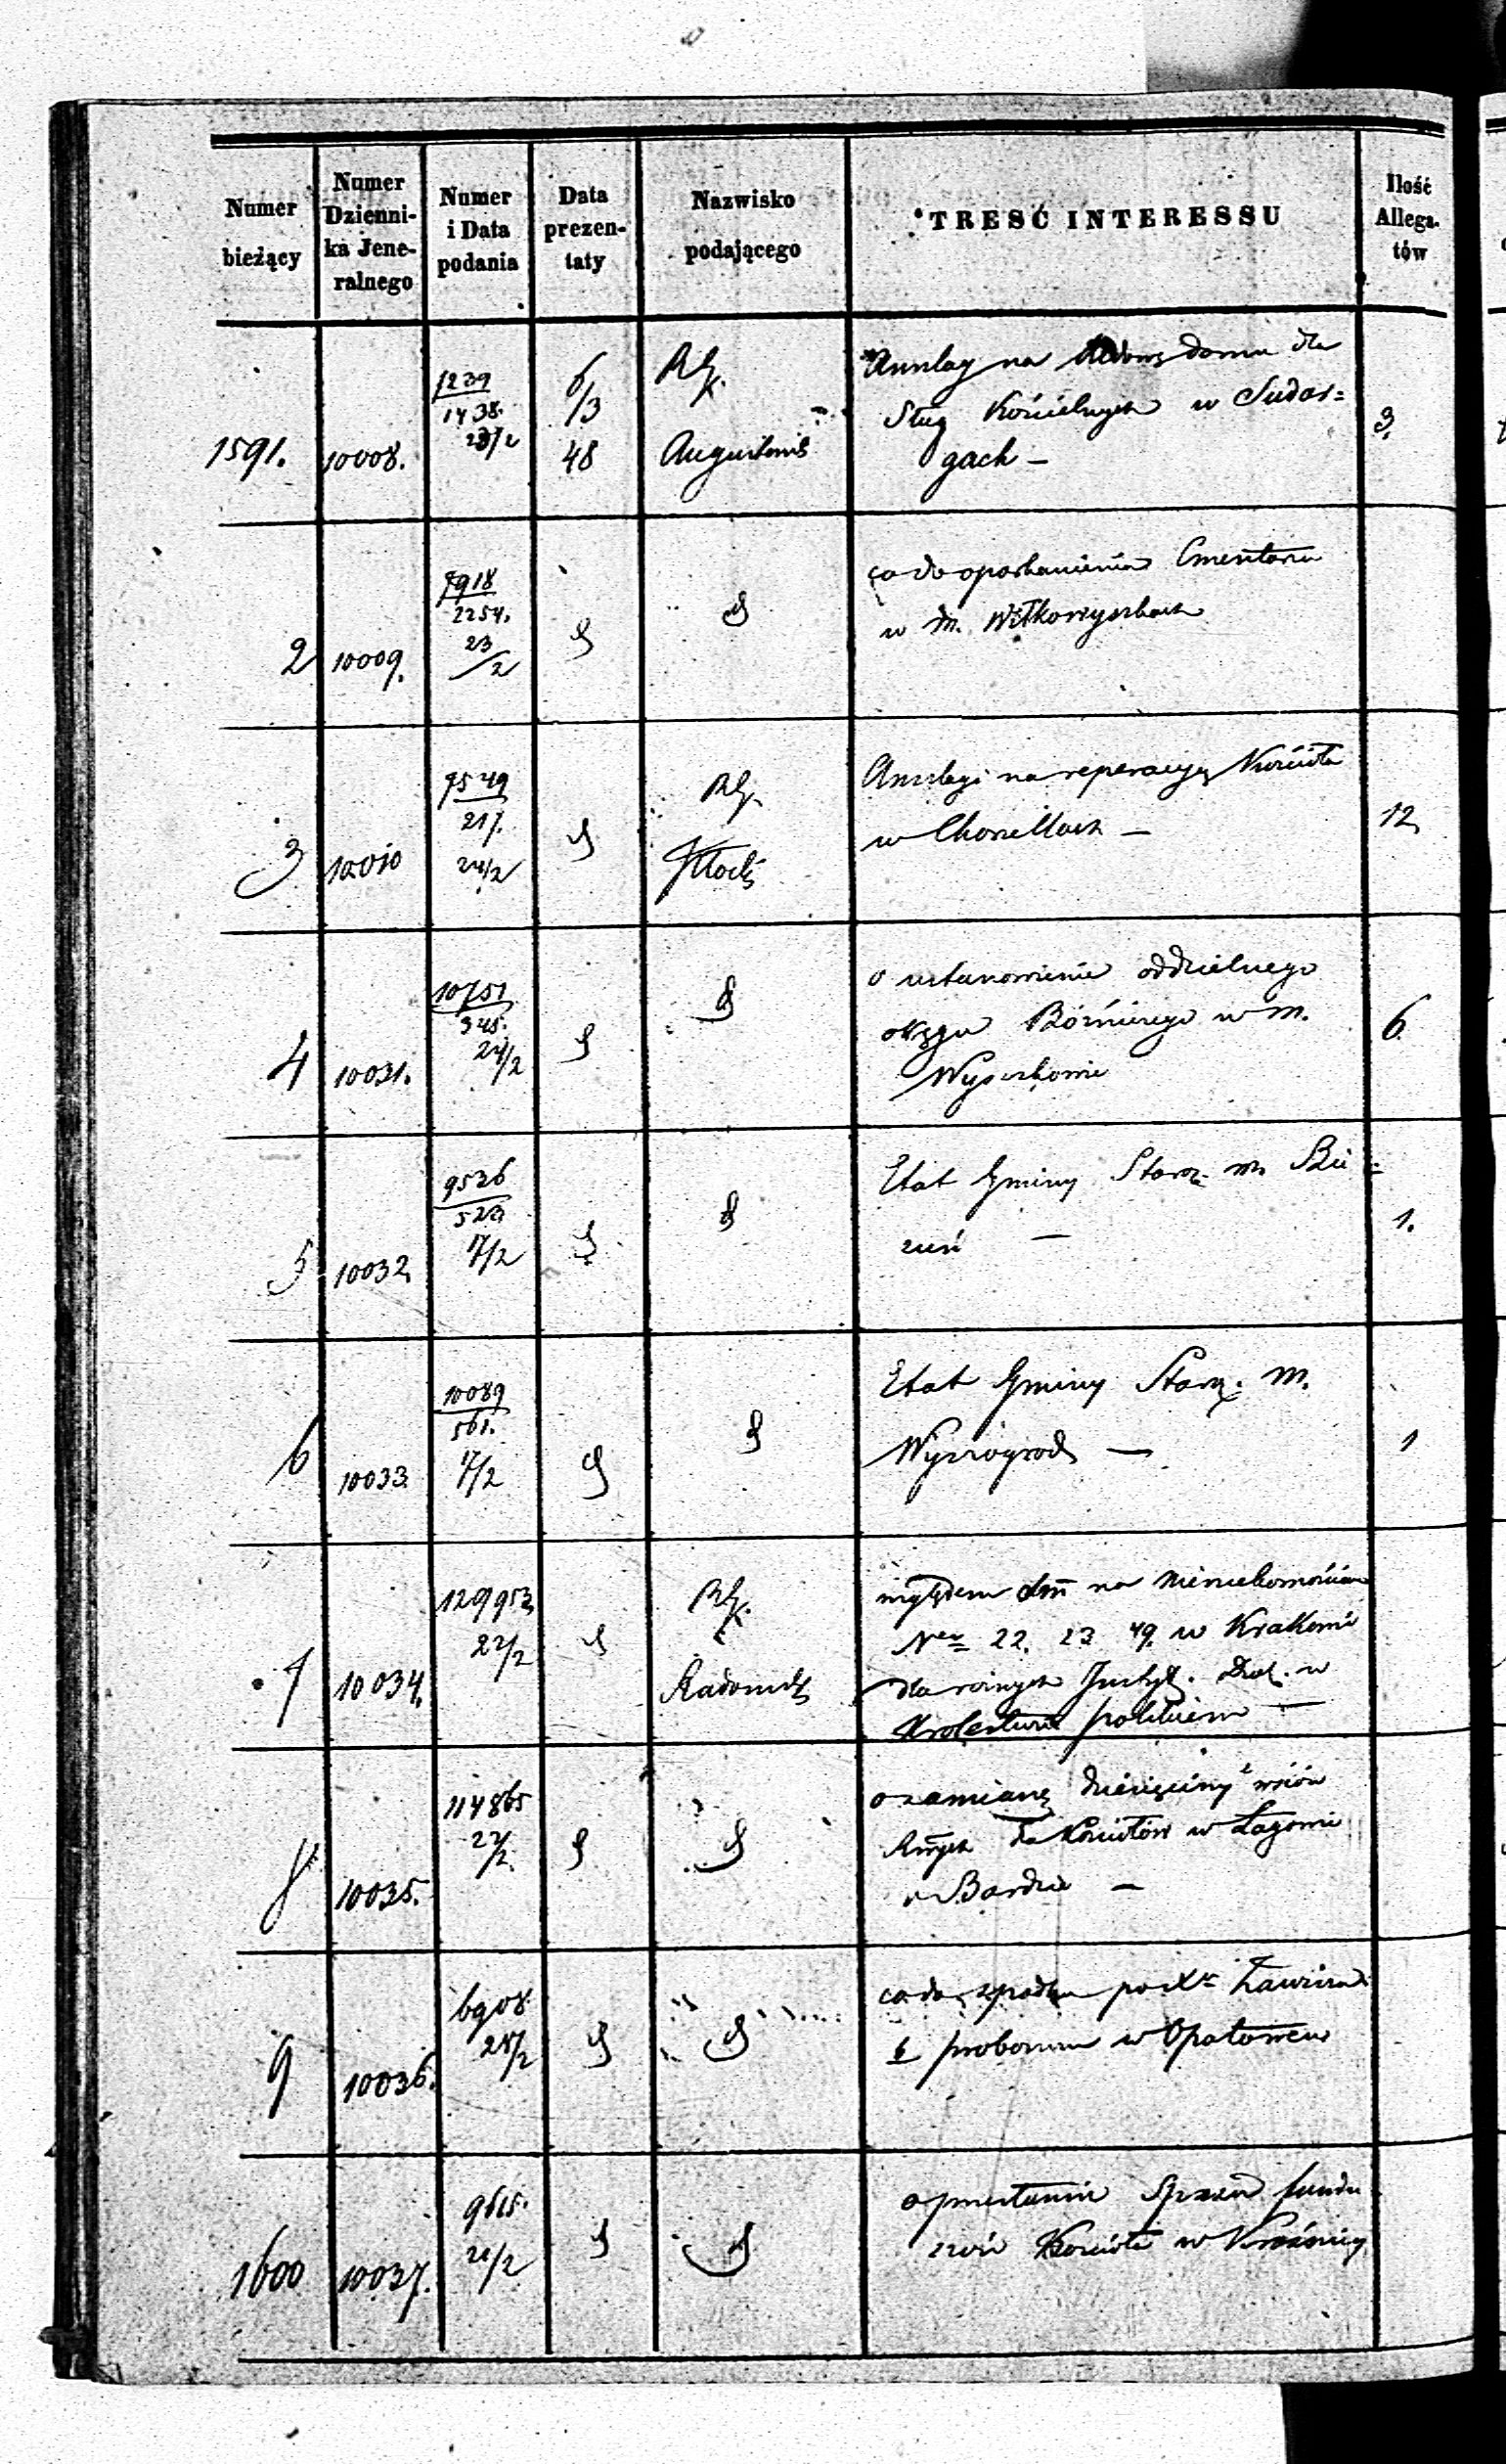 Numer
bieżący
Numer
Dzienni-
ka Jene-
ralnego
Numer
i Data
podania
Data
prezen-
taty
Nazwisko
podającego
TRESĆ INTERESSU
Ilość
Allega-
tów
1591. 10008.
1239
1438.
23/2
6/3
48
Augustows
Anszlag na domu dla
Sług Kościelnych w Sudar=
gach —
3.
2 10009.
7918
2254.
23/2
co do oparkanienia Cmentarza
w m. Wiłkowyszkach
3 10010
9549
217.
24/2
Płocki
Anszlagi na reperacyę Kościoła
w Chorzellach —
12
4 10031.
10751
345.
24/2
o ustanowienie oddzielnego
okręgu Bóżniczego w m.
Wyszkowie
6
5 10032
9536
523
17/2
Etat Gminy Staroz. m. Bie=
zuń —
1.
6 10033
10089
561.
17/2
Etat Gminy Staroz. m.
Wyszogrod —
1
7 10034.
129953
22/2
Radomsk
względem na Nieruchomościach
22. 23 49. w Krakowie
dla różnych Instyt. w
Królestwie polskiem —
8 10035.
114865
22/2.
o zamianę dziesięciny z wsiów
do Kościołów w Łagowie
i Bardzie —
9 10036.
6908
25/2
co do spadku po
proboszczu w Opatowcu
1600 10037.
9615.
21/2
Kościoła w